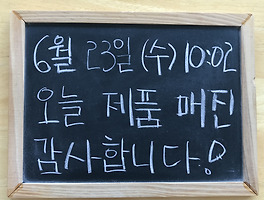 6월 23일 (수) 10:02
오늘 제품 매진
감사합니다!